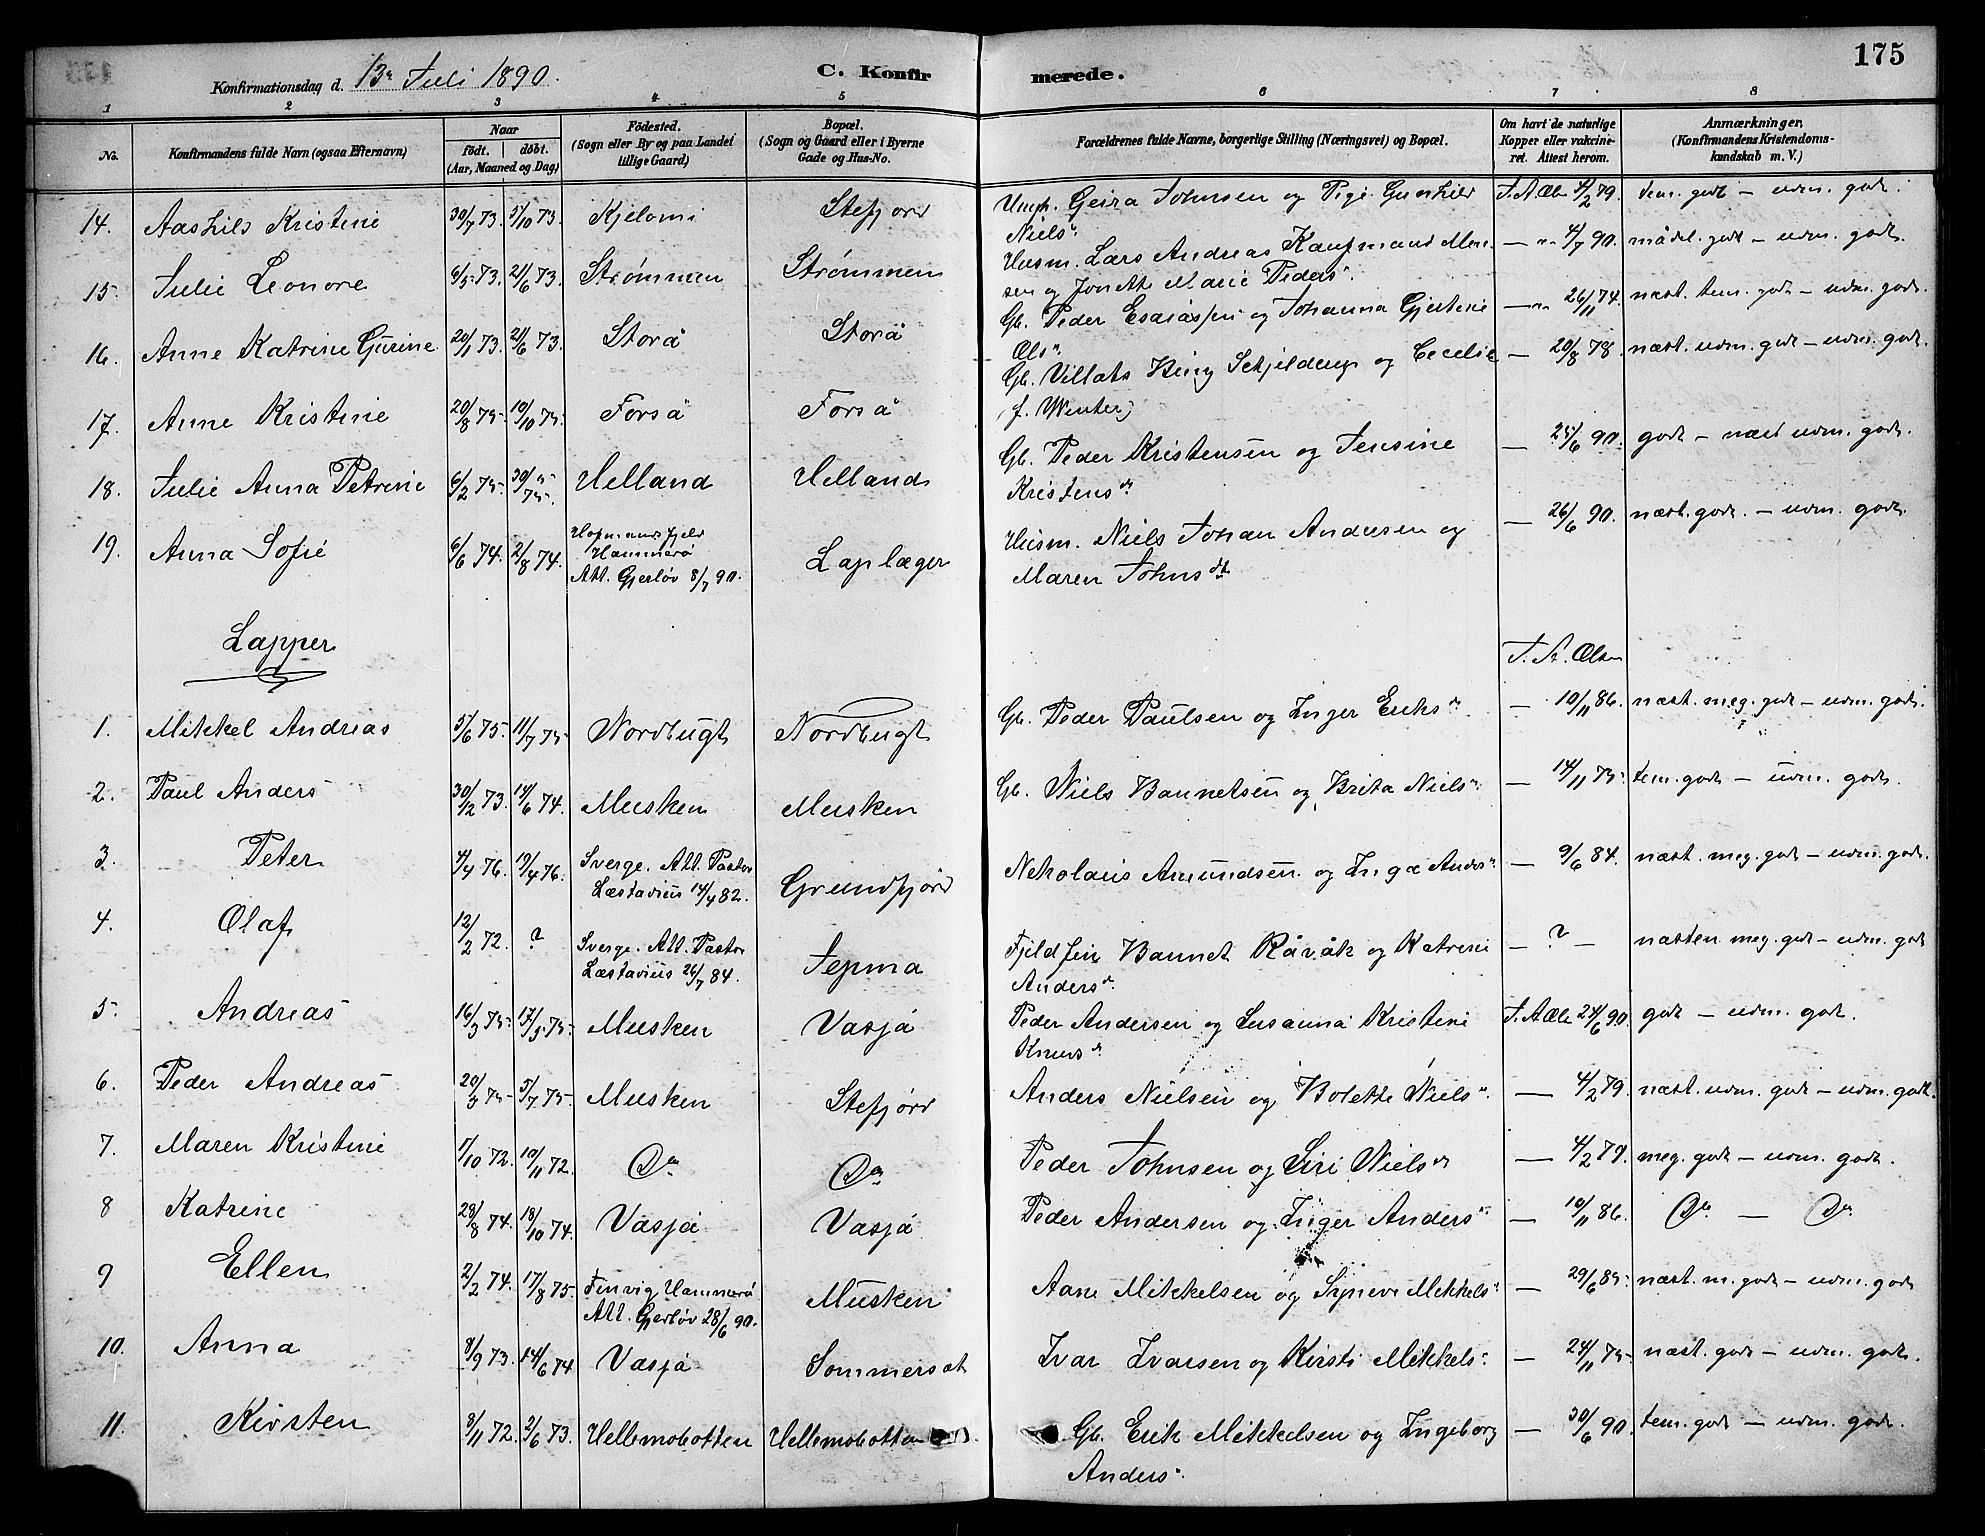 175
Konfirmationsdag d. 13de Juli 1890.
C. Konfirmerede.
1 2 3 4 5 6 7 8
No.
Konfirmandens fulde Navn (ogsaa Efternavn)
Naar
födt. döbt.
(Aar, Maaned og Dag)
Födested.
(Sogn eller By og paa Landet
tillige Gaard)
Bopæl.
(Sogn og Gaard eller i Byerne
Gade og Hus-No.
Forældrenes fulde Navne, borgerlige Stilling (Næringsvei) og Bopæl.
Om havt de naturlige
Kopper eller vakcine-
ret. Attest herom.
Anmærkninger.
(Konfirmandens Kristendoms-
kundskab m. V.)
14. Aashild Kristine 30/7 73. 5/10 73. Kjelomi Stefjord Ungk. Geira Johnsen og Pige Gunhild Niels d. J. A. Ols 4/2 79. tem. godt – udm. godt.
15. Julie Leonore 6/5 73. 21/6 73. Strømmen Strømmen Husm. Lars Andreas Kaufmand Mon- sen og Jonette Marie Peders d. – " 4/7 90. mådel. godt – udm. godt.
16. Anne Katrine Gurine 20/1 73. 21/6 73. Storå Storå Gb. Peder Esaiassen og Johanna Gjertine Ols d. – " 26/11 74. næst. tem. godt – udm. godt.
17. Anne Kristine 20/8 75 10/10 75. Forså Forså Gb. Villats King Schjelderup og Cecelie (f. Winter) – 20/8 78. næst. udm. godt – udm. godt.
18. Julie Anna Petrine 6/2 75 30/5 75. Helland Helland Gb. Peder Kristensen og Jensine Kristens dt. – 25/6 90. godt – næst udm. godt.
19. Anna Sofie 6/6 74. 2/8 74. Hofmannsfjeld Hammerø Att. Gjerløv 8/7 90. Laplæger Husm. Niels Johan Andersen og Maren Johns dt. – 26/6 90. næst. godt. – udm. godt.
Lapper
J. A. Olsen
1. Mikkel Andreas 5/6 75. 11/7 75. Nordbugt Nordbugt Gb. Peder Paulsen og Inger Eriks d. – 10/11 86. næst. meg. godt – udm. godt.
2. Paul Anders 30/12 73. 14/6 74. Musken Musken Gb. Niels Bannetsen og Brita Niels d. – 14/11 75. tem. godt – udm. godt.
3. Peter 4/4 76. 19/4 76. Sverge. Att. Pastor Læstavius 14/4 82. Grundfjord Nekolaus Amundsen og Inga Anders d. – 9/6 84. næst. meg. godt – udm. godt.
4. Olaf 12/2 72. ? Sverge. Att. Pastor Læstavius 26/7 84. Tepma Fjeldfin Bannet Råvåk og Katrine Anders d. – ? – næsten meg. godt – udm. godt
5. Andreas 16/3 75. 17/5 75. Musken Vasjå Peder Andersen og Susanna Kristine Knuds d. J. A. Ols 24/6 90. godt – udm. godt.
6. Peder Andreas 20/3 75 5/7 75. Musken Stefjord Anders Nielsen og Bolette Niels d. – 4/2 79. næst. udm. godt – udm. godt.
7. Maren Kristine 1/10 72. 10/11 72. Do Do Peder Johnsen og Siri Niels d. – 4/2 79. meg. godt – udm. godt.
8 Katrine 28/8 74. 18/10 74. Vasjå Vasjå Peder Andersen og Inger Anders d. – 10/11 86. Do – Do
9 Ellen 2/2 74. 17/8 75. Finvig Hammerø Att. Gjerløv 28/6 90. Musken Aane Mikkelsen og Synneve Mikkels d. – 29/6 85. næst. m. godt – udm. godt
10. Anna 8/9 73. 14/6 74 Vasjå Sommerset Ivar Ivarsen og Kirsti Mikkels d. – 24/11 75. næst. godt – udm. godt.
11. Kirsten 8/11 72. 2/6 73. Hellemobotten Hellemobotten Gb. Erik Mikkelsen og Ingeborg Anders d. – 30/6 90. tem. godt – udm. godt.